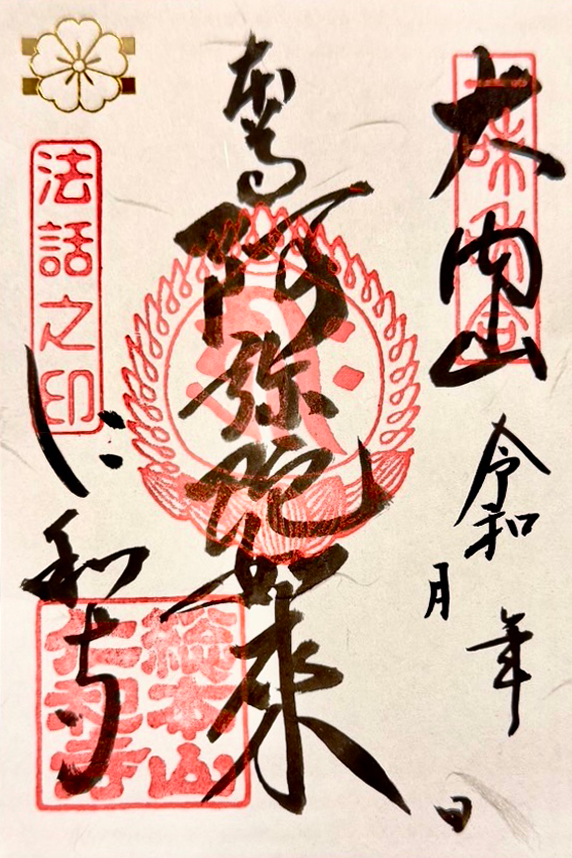 大内山
令和 年
月
日
本尊
阿弥陀如来
法話之印
仁和寺
總本山
仁和寺